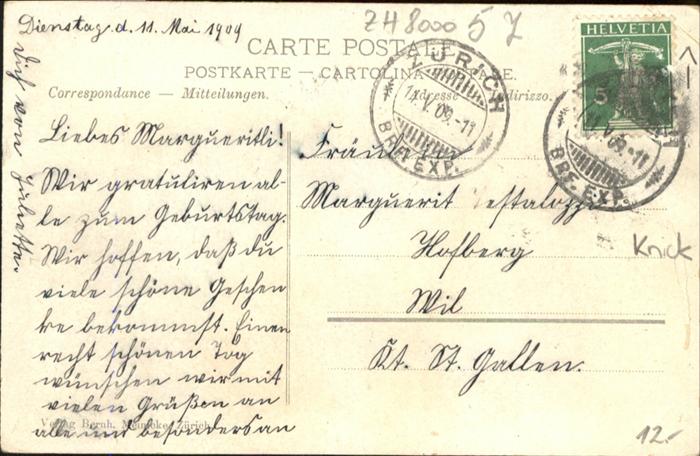 Dienstag d. 11. Mai 1909
ZH 8000 5 7
CARTE POSTALE
POSTKARTE — CARTOLINA POSTALE.
Correspondance — Mitteilungen.
Adresse — Indirizzo.
HELVETIA
5
ZÜRICH
11.V.09.-11
BRF. EXP.
11.V.09.-11
BRF. EXP.
Liebes Margueritli!
Wir gratuliren al-
le zum Geburtstag.
Wir hoffen, daß du
viele schöne Geschen
ke bekommst. Einen
recht schönen Tag
wünschen wir mit
vielen Grüßen an
alle und besonders an
dich von Juliette.
Fräulein
Marguerit Pestalozzi
Hofberg
Wil
Kt. St. Gallen.
Knick
12.-
Verlag Bernh. Zürich